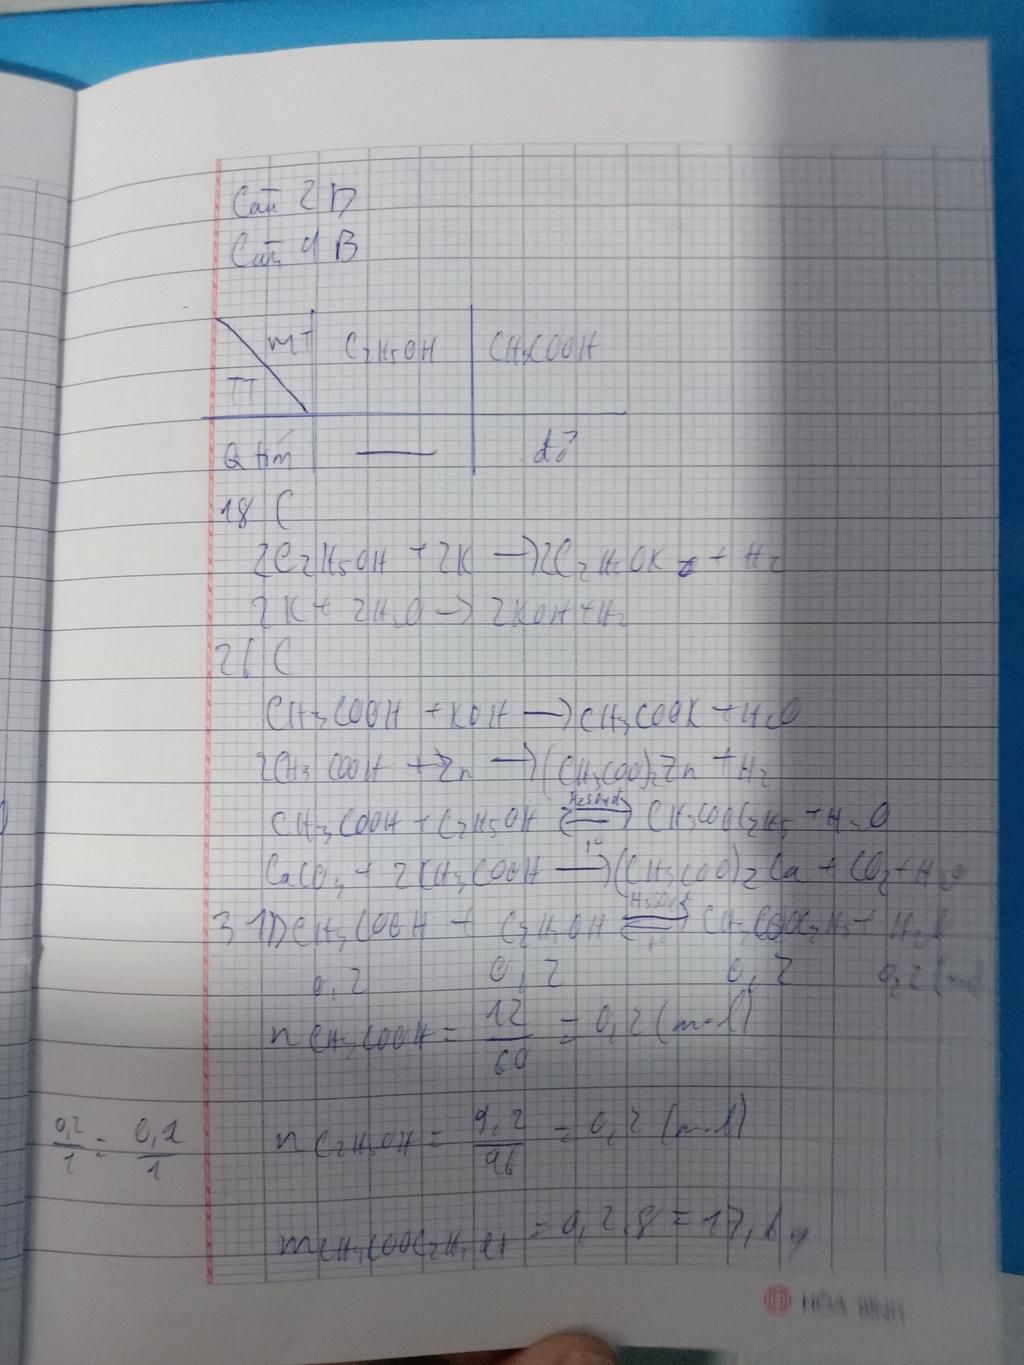 Câu 2 D
Câu 4 B
mT C₂H₅OH CH₃COOH
TT
Q tím — đỏ
18 C
2C₂H₅OH + 2K → 2C₂H₅OK + H₂
2K + 2H₂O → 2KOH + H₂
26 C
CH₃COOH + KOH → CH₃COOK + H₂O
2CH₃COOH + Zn → (CH₃COO)₂Zn + H₂
CH₃COOH + C₂H₅OH ⇌ CH₃COOC₂H₅ + H₂O
CaCO₃ + 2CH₃COOH → (CH₃COO)₂Ca + CO₂ + H₂O
31 D CH₃COOH + C₂H₅OH ⇌ CH₃COOC₂H₅ + H₂O
0,2 0,2 0,2 0,2 (mol)
nCH₃COOH = 12/60 = 0,2 (mol)
0,2/1 = 0,2/1 nC₂H₅OH = 9,2/46 = 0,2 (mol)
mCH₃COOC₂H₅ = 0,2 . = 17,6 g